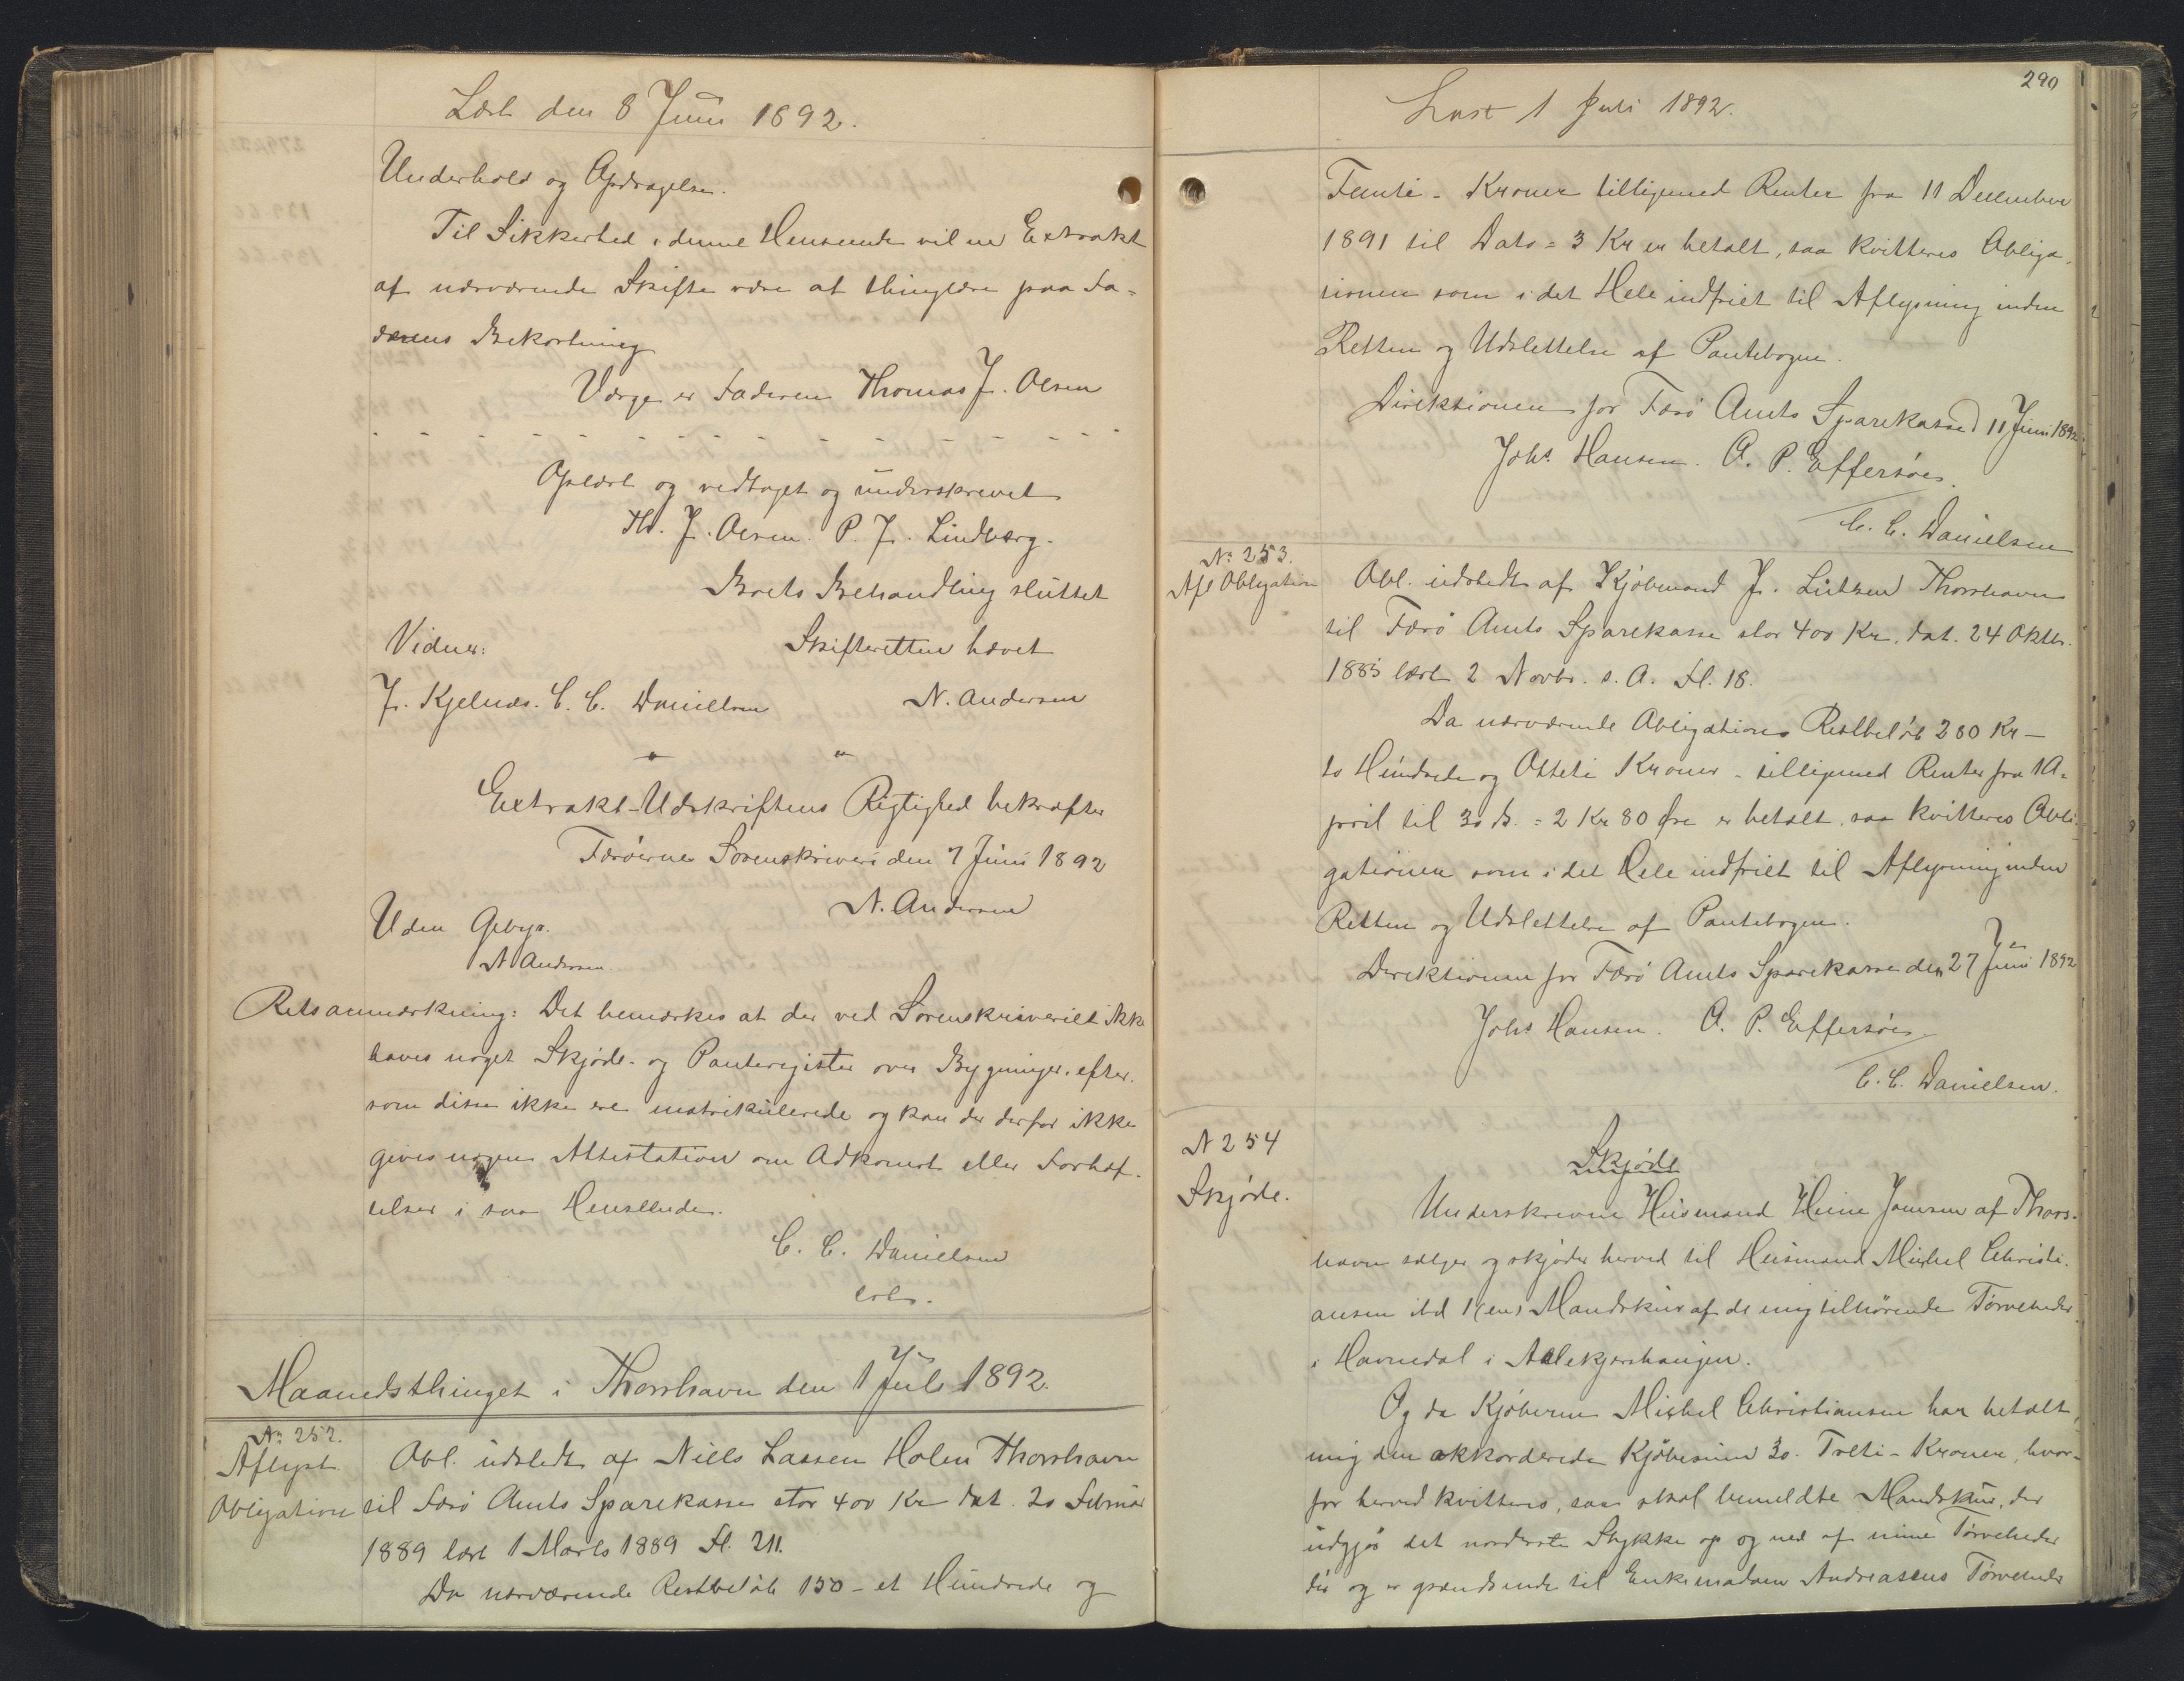 Læst den 8 Juni 1892.
Underhold og Opdragelse.
Til Sikkerhed i denne Henseende vil en Extrakt
af nærværende Skifte være at thinglæse paa Fa=
derens Bekostning
Værge er Faderen Thomas J. Olsen
Oplæst og vedtaget og underskrevet
Th. J. Olsen. P. J. Lindberg.
Boets Behandling sluttet
Vidner: Skifteretten hævet
J. Kjelnæs. C. C. Danielsen N. Andersen
Extrakt-Udskriftens Rigtighed bekræfter
Færøernes Sorenskriveri den 7 Juni 1892
N. Andersen
Uden Gebyr.
N Andersen
Retsanmærkning: Det bemærkes at der ved Sorenskriveriet ikke
haves noget Skjøde- og Panteregister over Bygninger, efter.
som disse ikke ere matrikulerede og kan der derfor ikke
gives nogen Attestation om Adkomst eller Forhæf-
telser i saa Henseende.
C. C. Danielsen
cst.
Maanedsthinget i Thorshavn den 1 Juli 1892.
No 252.
Aflyst
Obligation
Obl. udstedt af Niels Lassen Holen Thorshavn
til Færø Amts Sparekasse stor 400 Kr dat. 20 Februar
1889 læst 1 Marts 1889 Fl. 211.
Da nærværende Restbeløb 150 - et Hundrede og
290
Læst 1 Juli 1892.
Femti - Kroner tilligemed Renter fra 11 December
1891 til Dato = 3 Kr er betalt, saa kvitteres Obliga-
tionen som i det Hele indfriet til Aflysning inden
Retten og Udslettelse af Pantebogen.
Direktionen for Færø Amts Sparekasse d 11 Juni 1892
Johs Hansen. O. P. Effersøe.
C. C. Danielsen
No 253.
Afl Obligation
Obl. udstedt af Kjøbmand J. Lützen Thorshavn
til Færø Amts Sparekasse stor 400 Kr. dat. 24 Oktbr.
1885 læst 2 Novbr. s. A. Fl. 18.
Da nærværende Obligations Restbeløb 280 Kr -
to Hundrede og Otteti Kroner - tilligemed Renter fra 1 A=
pril til 30 ds. = 2 Kr 80 Øre er betalt, saa kvitteres Obli-
gationen som i det Hele indfriet til Aflysning inden
Retten og Udslettelse af Pantebogen.
Direktionen for Færø Amts Sparekasse den 27 Juni 1892
Johs Hansen. O. P. Effersøe
C. C. Danielsen.
N 254
Skjøde.
Skjøde
Underskrevne Husmand Heine Joensen af Thors-
havn sælger og skjøder herved til Husmand Michel Christi-
ansen ibd 1 (en) Mandskur af de mig tilhørende Tørveheder
i Havnedal i
Og da Kjøberen Michel Christiansen har betalt
mig den akkorderede Kjøbesum 30 - Treti - Kroner, hvor-
for herved kvitteres, saa skal bemeldte Mandskur, der
udgjør det norderste Stykke op og ned af mine Tørveheder
der og er grændsende til Enkemadam Andreasens Tørveheder